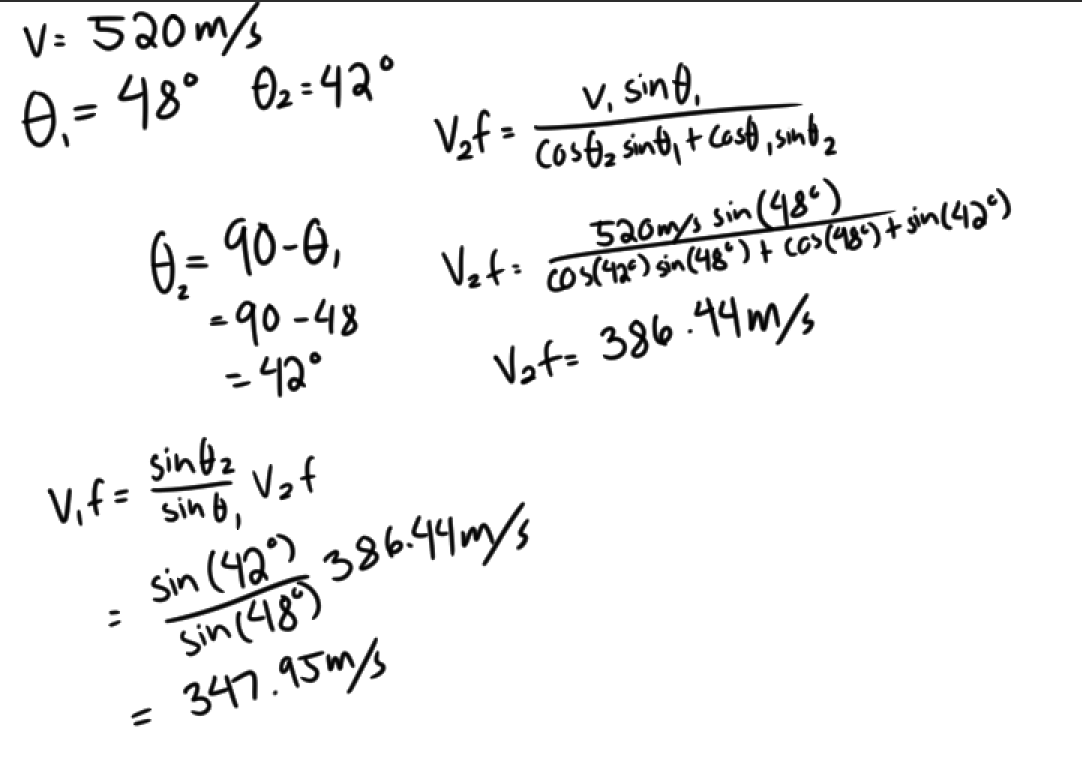 V = 520 m/s
θ₁ = 48° θ₂ = 42°
V₂f = V₁ sinθ₁ / cosθ₂ sinθ₁ + cosθ₁ sinθ₂
θ₂ = 90 - θ₁
= 90 - 48
= 42°
V₂f = 520 m/s sin(48°) / cos(42°) sin(48°) + cos(48°) + sin(42°)
V₂f = 386.44 m/s
V₁f = sinθ₂ / sinθ₁ V₂f
= sin(42°) / sin(48°) 386.44 m/s
= 347.95 m/s